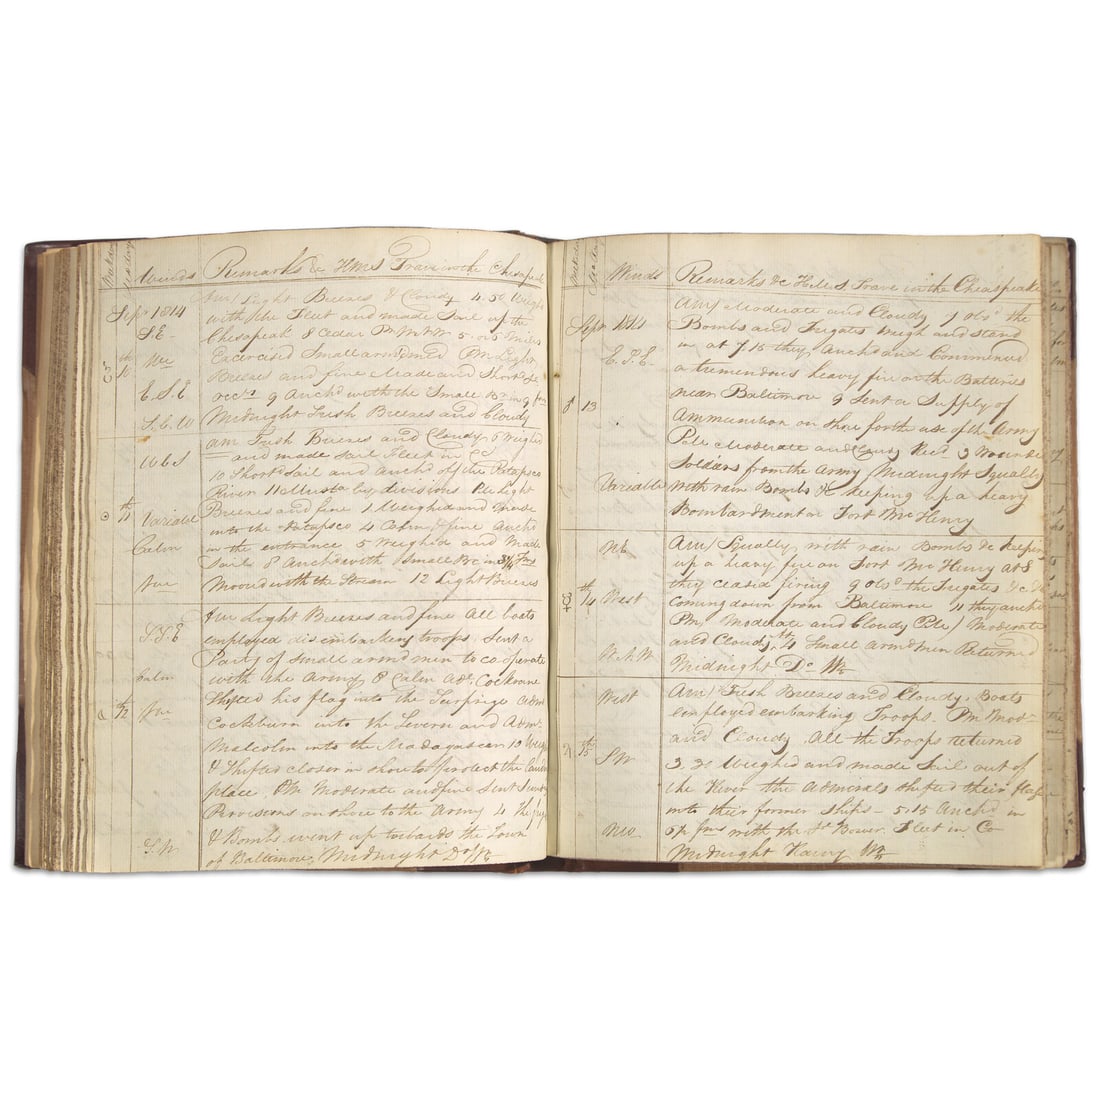 Week days
Winds Remarks &c HMS Trave in the Chesapeak
Sepr 1814
Am/ Light Breezes & Cloudy 4.50 Weighd
with the Fleet and made Sail up the
S.E.
Chesapeak 8 Cedar Pt 5 or 6 Miles
th 10 We
Excercised Small armd men Pm Light
Breezes and fine Made and Short Sl
E.S.E
occ. 9 Anchd with the Small Br in 9 fm
S.E.W
Midnight Fresh Breezes and Cloudy
am Fresh Breezes and Cloudy 6 Weighd
WbS
and made sail Fleet in Co
10 Shortd Sail and Anchd off the Patapsco
River 11 Mustd by divisions Light
th 11 Variable
Breezes and fine 1 Weighed and
into the Patapsco 4 Calm & fine Anchd
Calm
in the entrance 5 Weighed and Made
Sail 8 Anchd with Small Br in 3¾ Fms
Moord with the Stream 12 Light Breezes
S.S.E
Am Light Breezes and fine All boats
employed disembarking troops. Sent a
Party of small armd men to co operate
Calm
with the Army 8 Calm Adl. Cockrane
th 12
Shifted his flag into the Surprize Adml
Cockburn into the Severn and Adml
Malcolm into the Madagascan 10 Weighd
& Shifted closer in shore to protect the landing
place. PM Moderate and fine Sent Sundry
Provisions on shore to the Army 4 The frigs
& Bombs went up towards the Town
S.W.
of Baltimore, Midnight Do Wr
Week days
Winds Remarks &c HMS Trave in the Cheaspeake
Am/ Moderate and Cloudy, obsd the
Sepr 1814
Bombs and Frigates weigh and stand
E.S.E.
in at 7.15 they Anchd and Commenced
a tremendous heavy fire on the Batteries
♂ 13
near Baltimore 9 Sent a Supply of
Ammunition on Shore for the use of the Army
Moderate and Cloudy Recd 3 Wounded
Soldiers from the Army Midnight Squally
Variable
with rain Bombs &c keeping up a heavy
Bombardment on Fort McHenry
NE
Am/ Squally, with rain Bombs &c keeping
up a heavy fire on Fort McHenry At 8
th 14
they ceased firing 9 obsd the Frigates &c
West
coming down from Baltimore 4 they anchd
Pm, Moderate and Cloudy Moderate
and Cloudy, 4 Small Armd Men Returned
W.N.W
Midnight Do Wr
West
Am/ Fresh Breezes and Cloudy. Boats
employed embarking Troops. Pm Modr
♃ th 15
and Cloudy All the Troops returned
SW
Weighed and made Sail out of
the River the Admirals shifted their flags
into their former ships 5.15 Anchd in
5½ fms with the St Bower. Fleet in Co
Midnight Wr